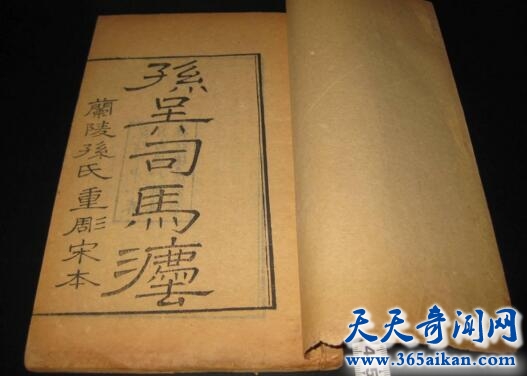 孫吳司馬灋
蘭陵孫氏重彫宋本
天天奇闻网
www.365aikan.com